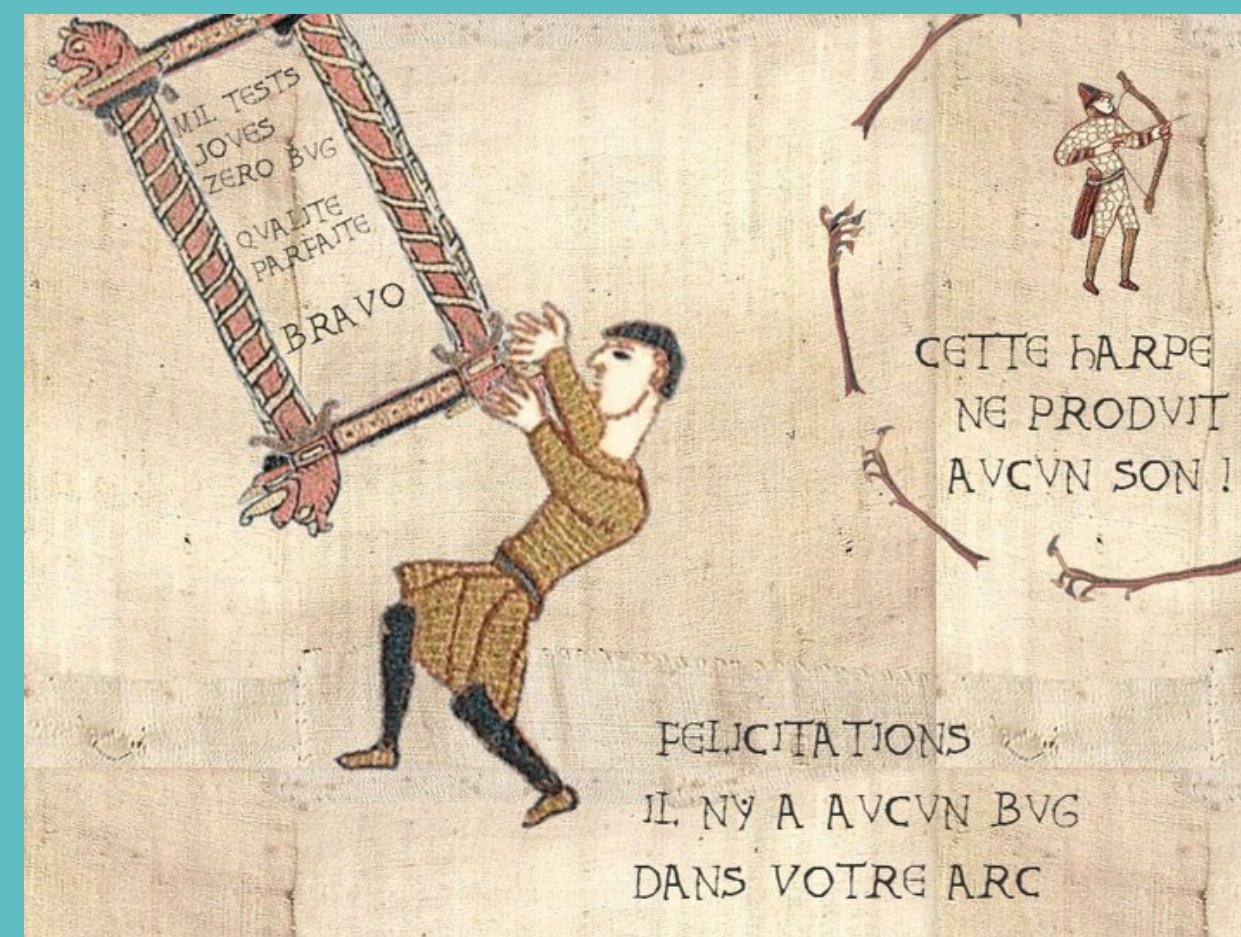 MIL TESTS
JOVES
ZERO BVG
QVALITE
PARFAITE
BRAVO
CETTE hARPE
NE PRODVIT
AVCVN SON !
FELICITATIONS
IL NY A AVCVN BVG
DANS VOTRE ARC